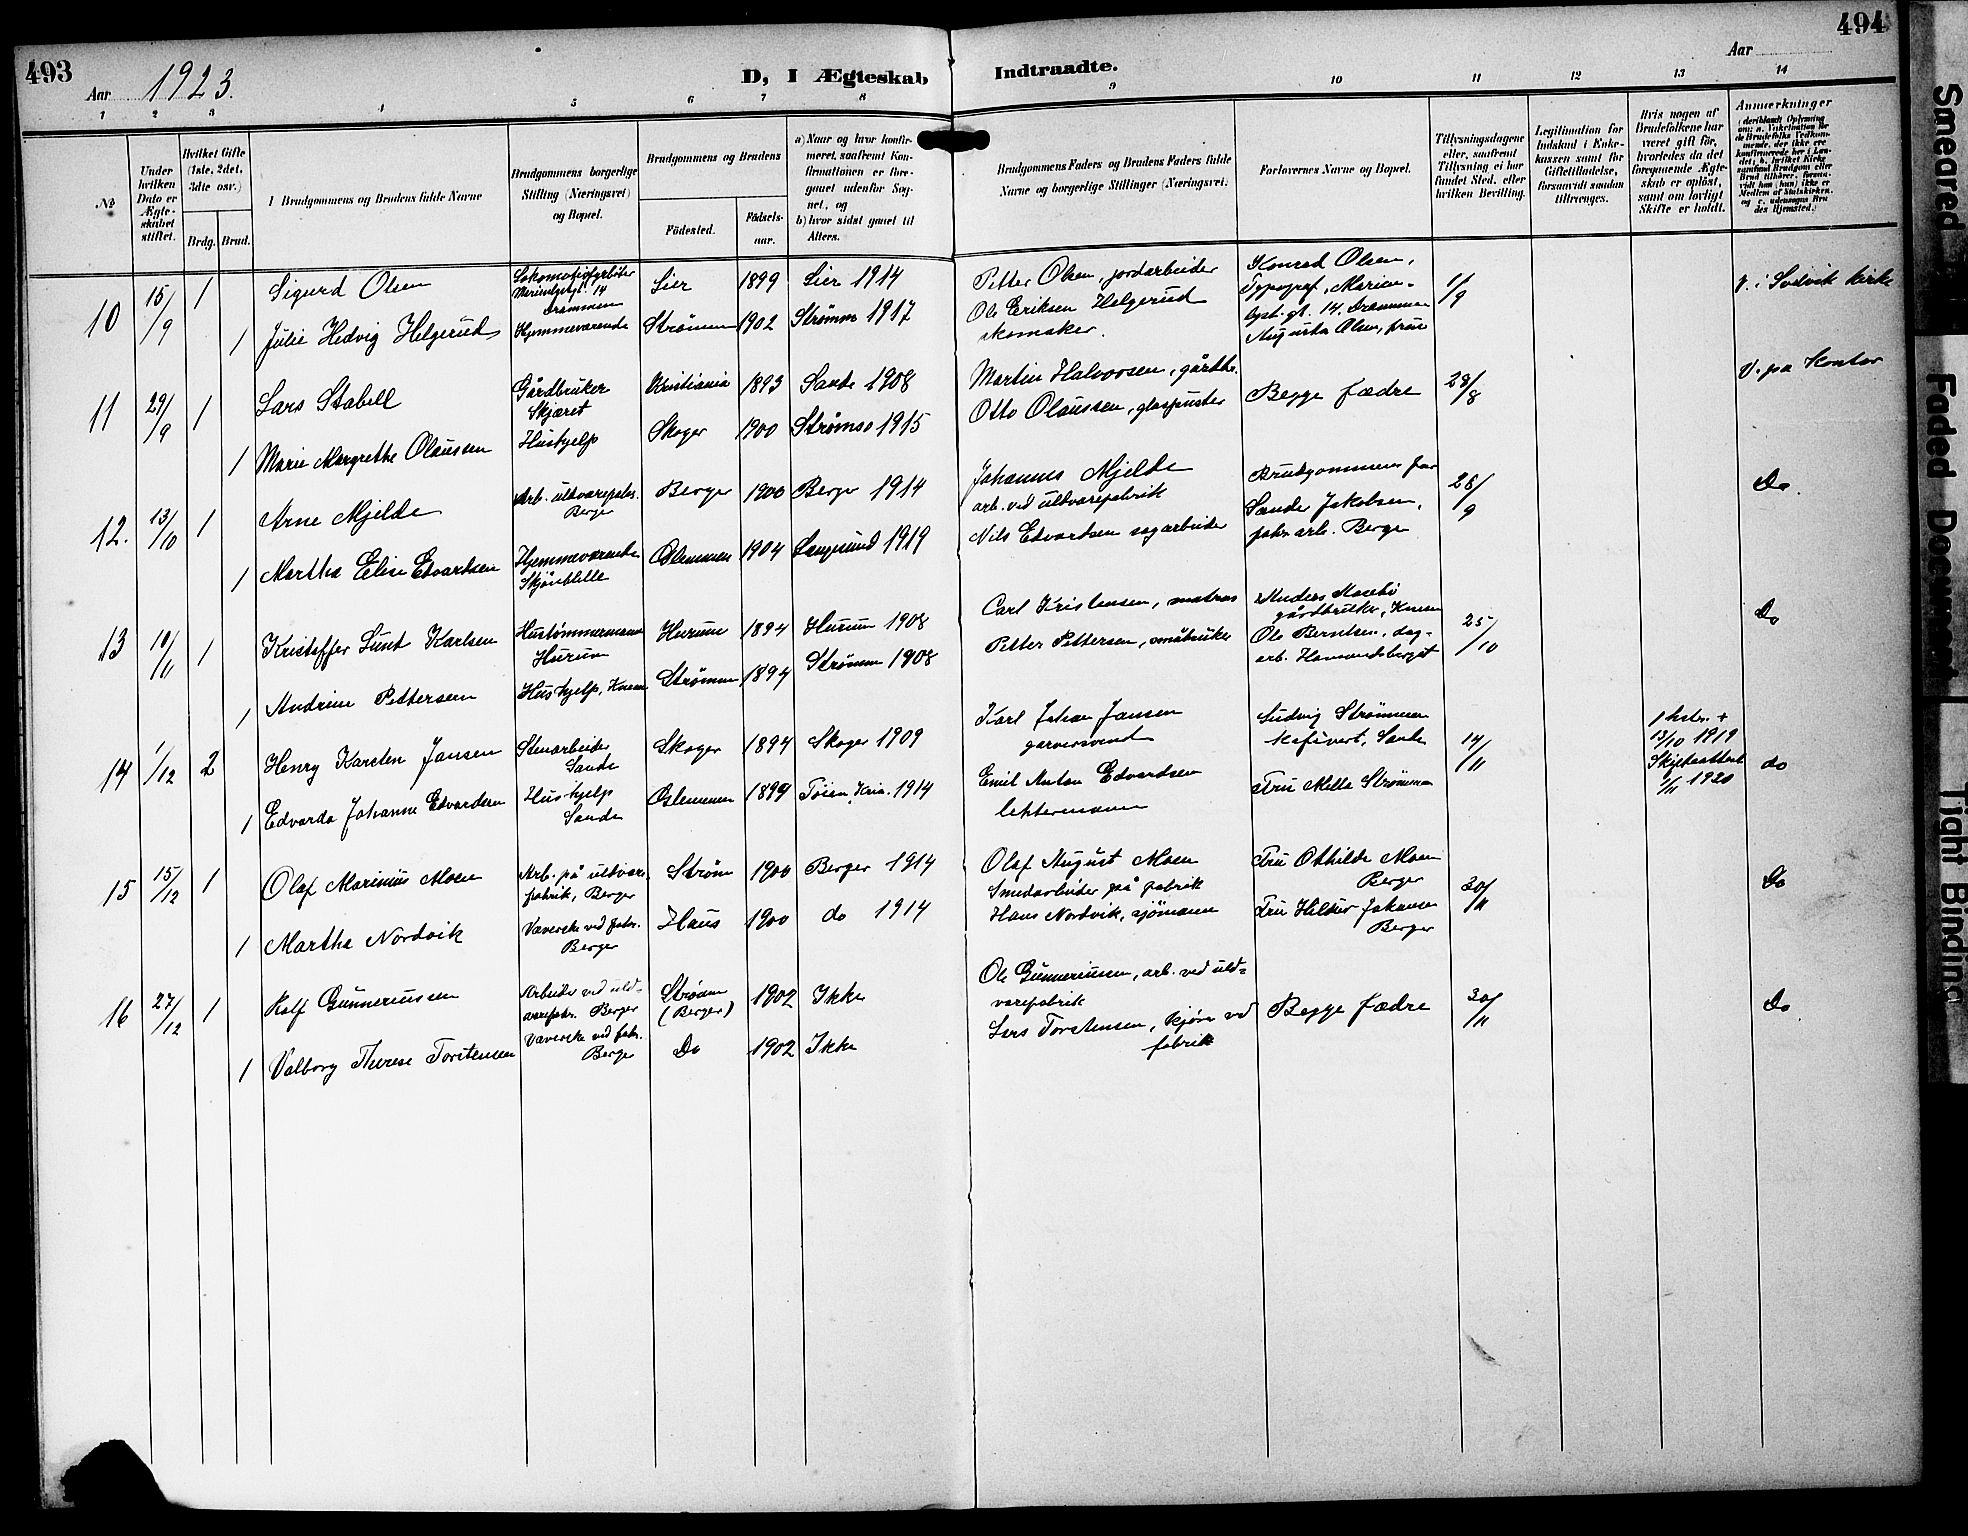 493
Aar 1923.
D, I Ægteskab Indtraadte.
Aar
494
1 2 3 4 5 6 7 8 9 10 11 12 13 14
No
Under hvilken Dato er Ægteskabet stiftet.
Hvilket Gifte (1ste, 2det, 3dte osv.)
Brdg. Brud.
Brudgommens og Brudens fulde Navne
Brudgommens borgerlige Stilling (Næringsvei) og Bopæl.
Brudgommens og Brudens
Födested. Födselsaar.
a) Naar og hvor konfirmeret, saafremt Konfirmationen er foregaaet udenfor Sognet, og
b) hvor sidst gaaet til Alters.
Brudgommens Faders og Brudens Faders fulde Navne og borgerlige Stillinger (Næringsvei).
Forlovernes Navne og Bopæl.
Tillysningsdagene eller, saafremt Tillysning ei har fundet Sted, efter hvilken Bevilling.
Legitimation for Indskud i Enkekassen samt for Giftetilladelse, forsaavidt saadan tiltrænges.
Hvis nogen af Brudefolkene har været gift för, hvorledes da det foregaaende Ægteskab er oplöst, samt om lovligt Skifte er holdt.
Anmærkninger
10 15/9 1 Sigurd Olsen
Drammen
Lier 1899 Lier 1914
Petter Olsen, jordarbeider
Konrad Olsen,
Typograf, Marien-
lyst. gt. 14. Drammen
1/9
V. i Sodvik kirke
1 Julie Hedvig Helgerud
Hjemmeværende
Strømm 1902 Strømm 1917
Ole Eriksen Helgerud
skomaker.
Augusta Olsen, frue
11 29/9 1 Lars Stabell
Gårdbruker
Skjæret
Kristiania 1893 Sande 1908
Martin Halvorsen, gårdbr.
Begge fædre
28/8
V. pa Kontor
1 Marie Margrethe Olaussen
Hushjelp
Skoger 1900 Strømso 1915
Otto Olaussen, glaspuster
12. 13/10 1 Arne Mjelde
Arb. uldvarefabr.
Berger
Berger 1900 Berger 1914
Johannes Mjelde
arb. ved uldvarefabrik
Brudgommens far
28/9
Do.
1 Martha Elise Edvardsen
Hjemmeværende
Østemmen 1904 Langesund 1919
Nils Edvardsen sagarbeider
Sande Jakobsen,
fabr. arb. Berge
13 10/11 1 Kristoffer Lund Karlsen
Hustømmermann
Hurum
Hurum 1894 Hurum 1908
Carl Kristensen, matros
gårdbruker,
25/10
Do
1 Andrine Pettersen
Hushjelp,
Strømm 1894 Strømm 1908
Petter Pettersen, småbruker
Ole Berntsen, dag-
arb.
14 1/12 2 Henry Karsten Jansen
Stenarbeider
Sande
Skoger 1894 Skoger 1909
Karl Johan Jansen
garversvend
Ludvig Strømmen
Kafévert, Sande
14/11
1 hstr. +
13/10 1919
Skifteattest
6/11 1920
do
1 Edvarda Johanne Edvardsen
Hushjelp
Sande
Østemmen 1899 Tøien, Kria. 1914
Emil Anton Edvardsen
lektermann
Fru Mella Strømmen
15 15/12 1 Olaf Marinius Moen
Arb. på uldvare-
fabrik, Berger
Strøm 1900 Berger 1914
Olaf August Moen
Smedarbeider på fabrik
Fru Othilde Moen
Berger
30/11
Do
1 Martha Nordvik
Væverske ved fabr.
Berger
Haus 1900 do 1914
Hans Nordvik, sjömann
Fru Hilder Johansen
Berger
16 27/12 1 Rolf Gunneriussen
Arbeider ved uld-
varefabr. Berger
Strømm
(Berger)
1902 Ikke
Ole Gunneriussen, arb. ved uld-
varefabrik
Begge fædre
30/11
Do
1 Valborg Therese Torstensen
Væverske ved fabr.
Berger
Do 1902 Ikke
Lars Torstensen, kjører ved
fabrik
Smeared
Faded Document
Tight Binding